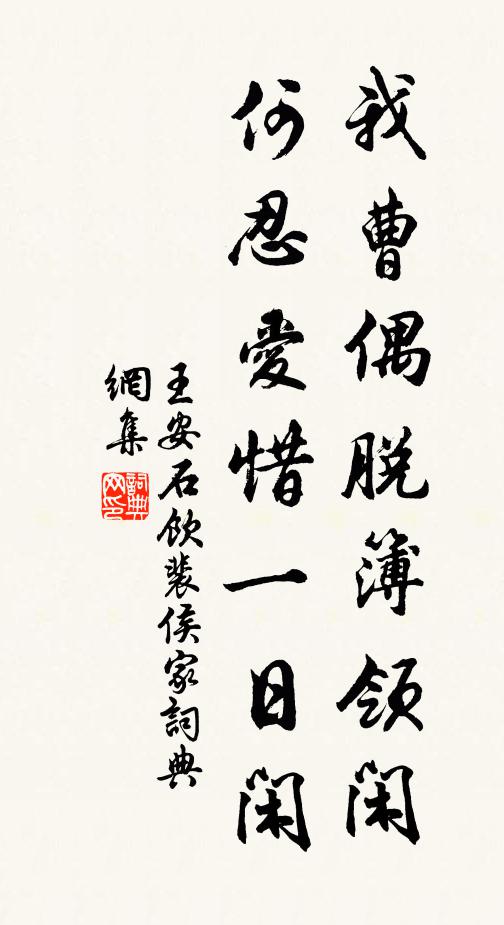 我曹偶脱簿领闲
何忍爱惜一日闲
王安石饮裴侯家词典
网集
词典网印